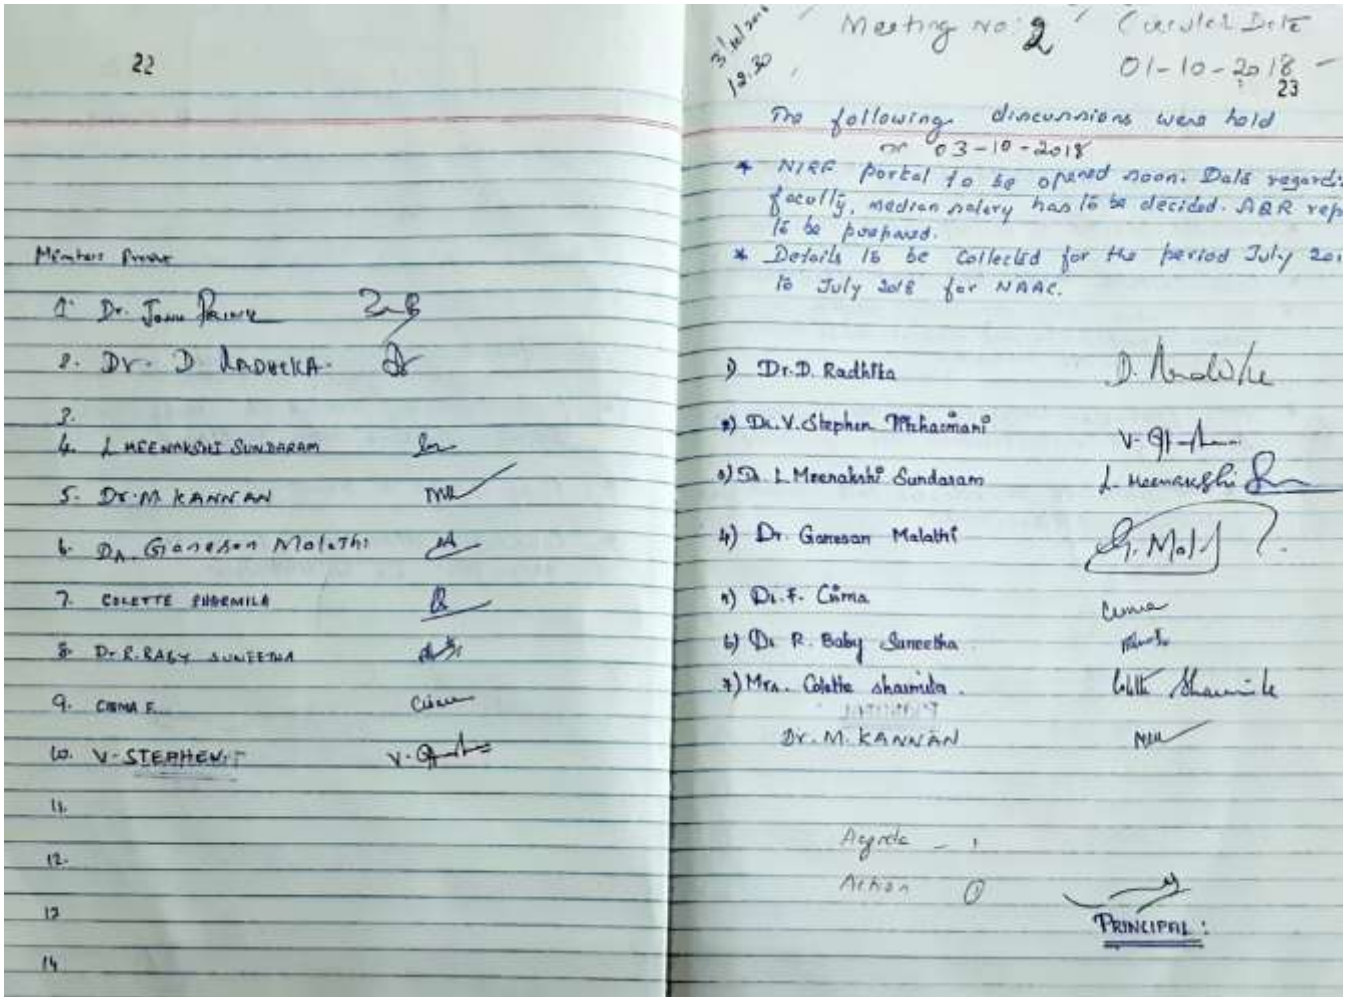 22
Members Present
1. Dr. John
2. Dr. D. RADHIKA.
3.
4. L MEENAKSHI SUNDARAM
5. Dr. M. KANNAN
6. Dr. Ganesan Malathi
7. COLETTE SHARMILA
8. Dr R. BABY SUNEETHA
9. CISMA F.
10. V. STEPHEN
11.
12.
13
14
12.30
Meeting No: 2 Circular Date
01-10-2018
23
The following discussions were held
on 03-10-2018
* NIRF portal to be opened soon. Data regardi
faculty, median salary has to be decided. AQR rep
to be prepared.
* Details to be collected for the period July 20
to July 2018 for NAAC.
1) Dr. D. Radhika D. Radhika
2) Dr. V. Stephen
3) Dr. L Meenakshi Sundaram L. Meenakshi
4) Dr. Ganesan Malathi
5) Dr. F.
6) Dr R. Baby Suneetha
7) Mrs. Colette Sharmila. Colette Sharmila
Dr. M. KANNAN
Action
PRINCIPAL: